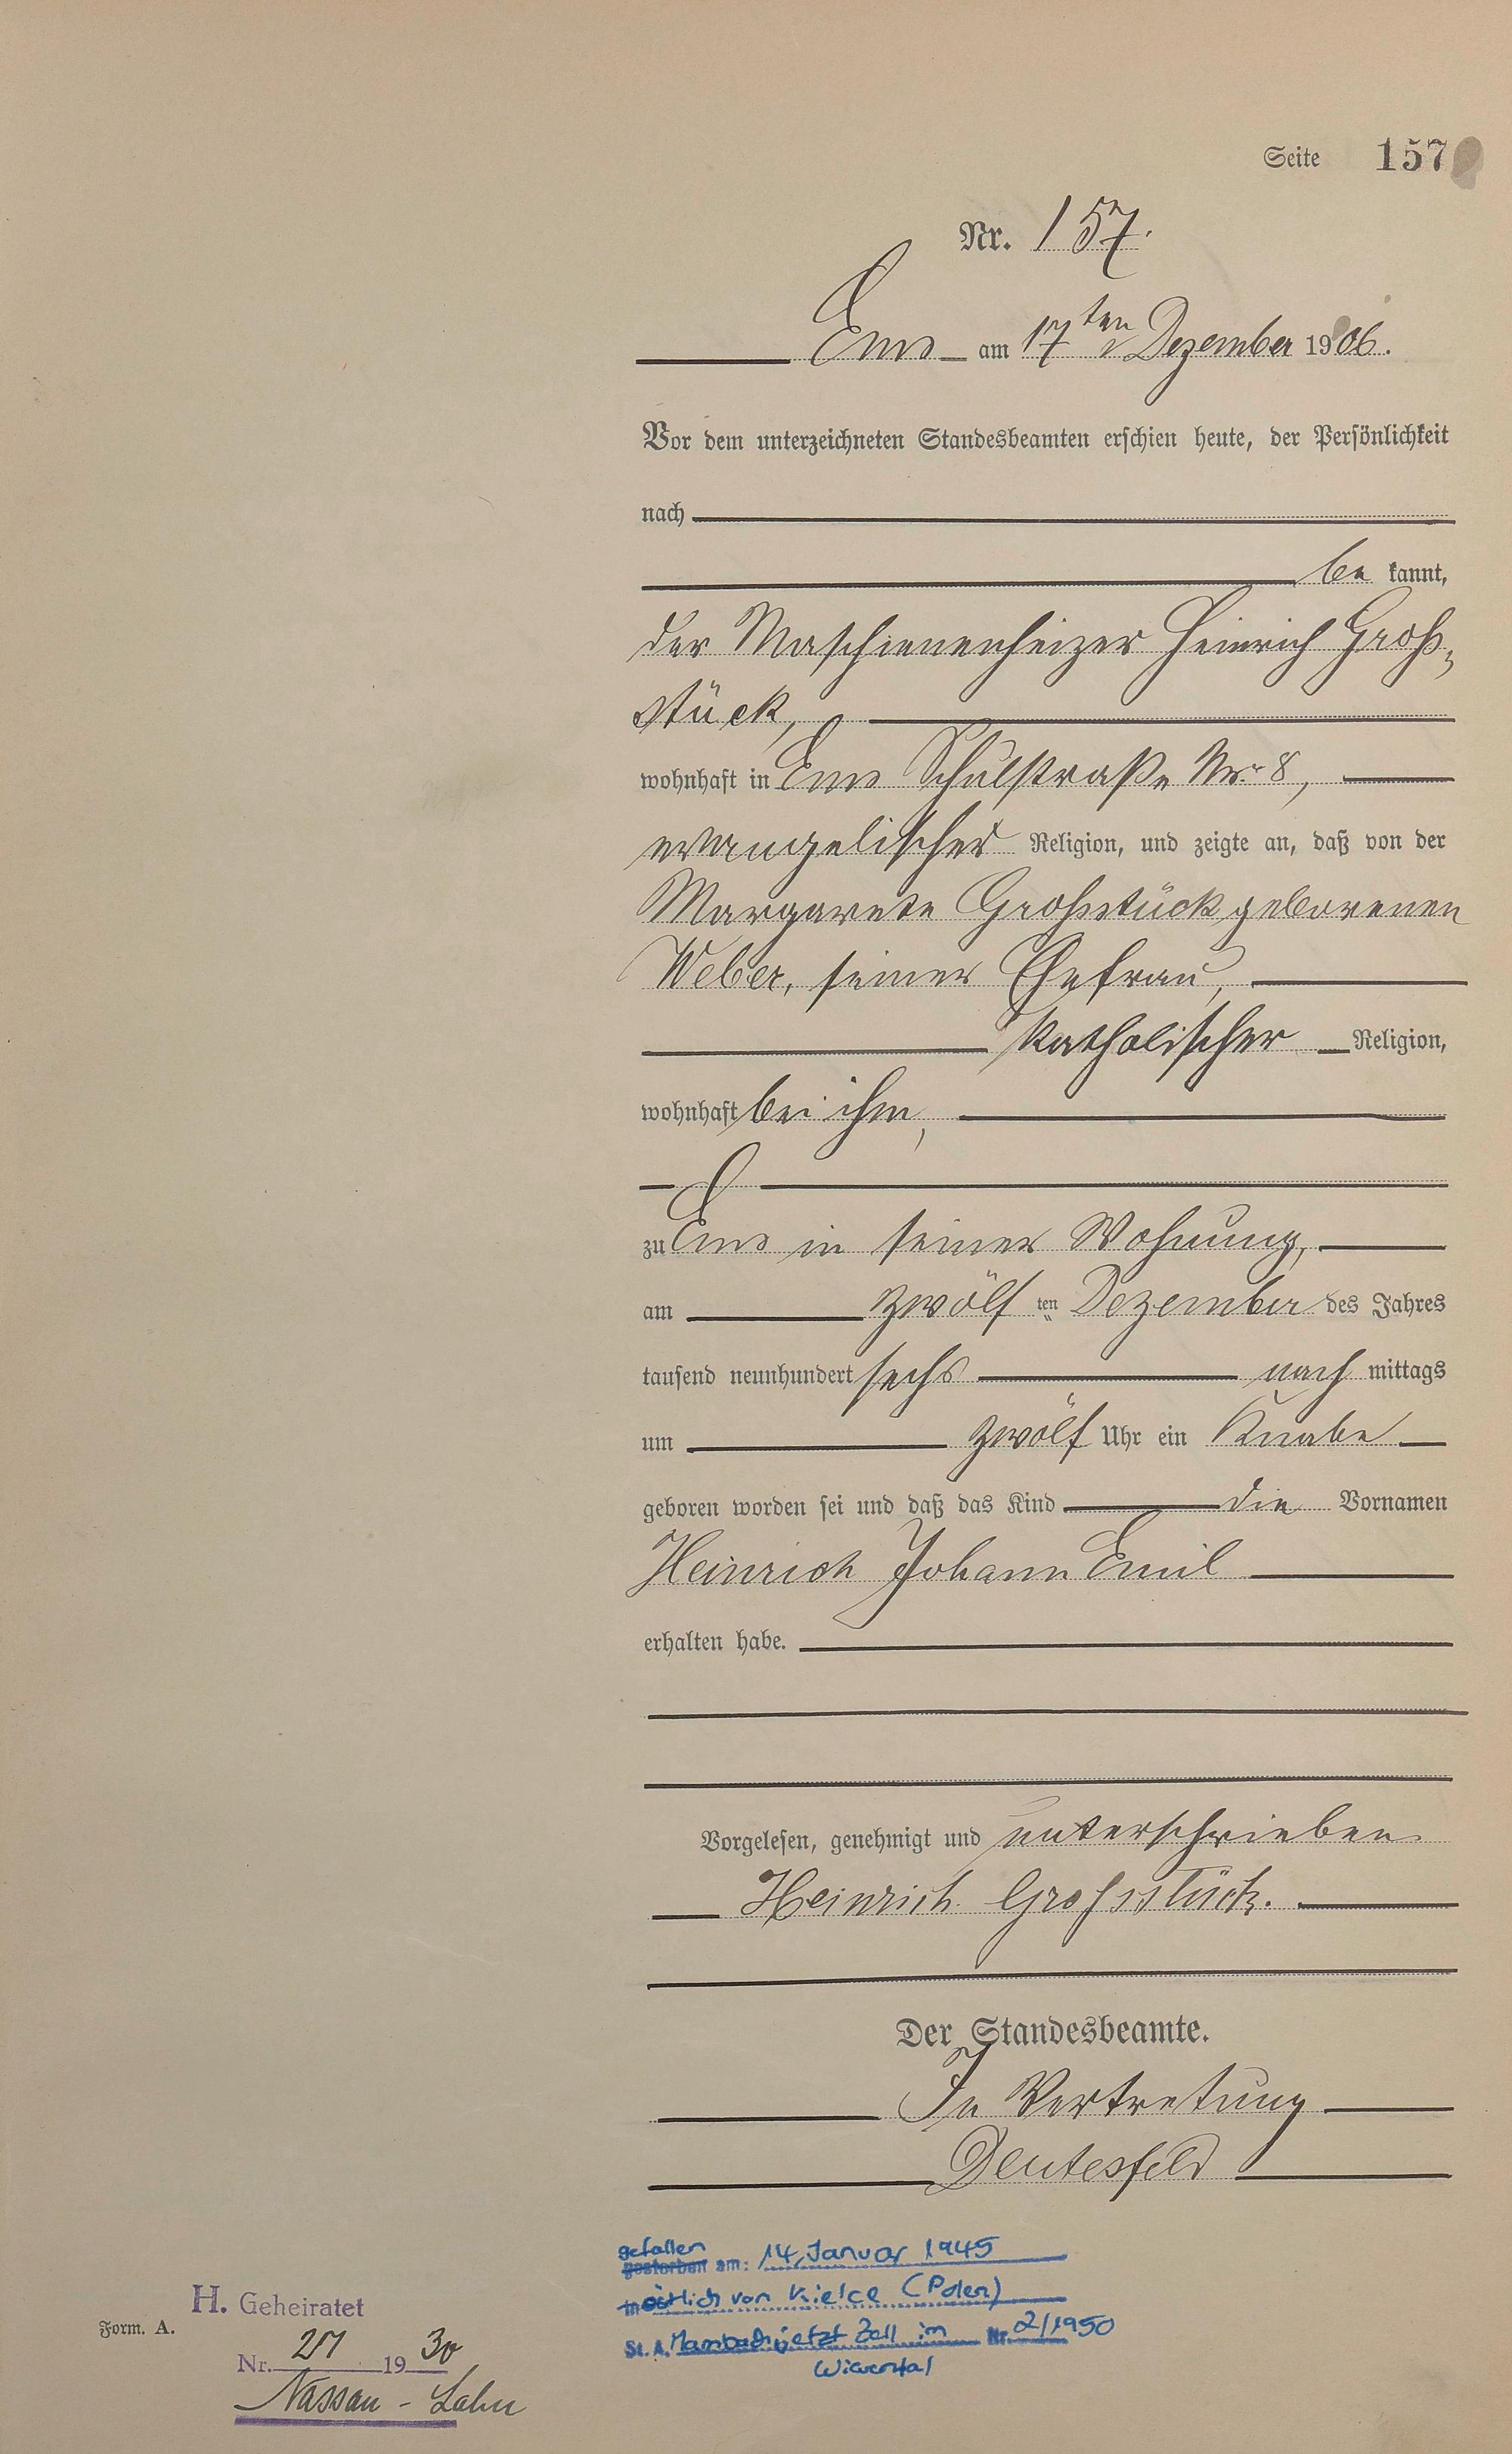 Seite 157
Nr. 157.
Ems am 17ten Dezember 1906.
Vor dem unterzeichneten Standesbeamten erschien heute, der Persönlichkeit
nach
be kannt,
der Maschienenheizer Heinrich Groß-
stück,
wohnhaft in Ems Schulstraße Nr. 8,
evangelischer Religion, und zeigte an, daß von der
Margarete Großstück geborenen
Weber, seiner Ehefrau,
katholischer Religion,
wohnhaft bei ihm,
zu Ems in seiner Wohnung,
am zwölf ten Dezember des Jahres
tausend neunhundert sechs nach mittags
um zwölf Uhr ein Knabe
geboren worden sei und daß das Kind die Vornamen
Heinrich Johann Emil
erhalten habe.
Vorgelesen, genehmigt und unterschrieben
Heinrich Grossstück.
Der Standesbeamte.
In Vertretung
Deutesfeld
gefallen
gestorben am: 14. Januar 1945
in östlich von Kielce (Polen)
St. A. Mambach jetzt Zell im Nr. 2/1950
Wiesental
H. Geheiratet
Form. A.
Nr. 27 1930
Nassau - Lahn